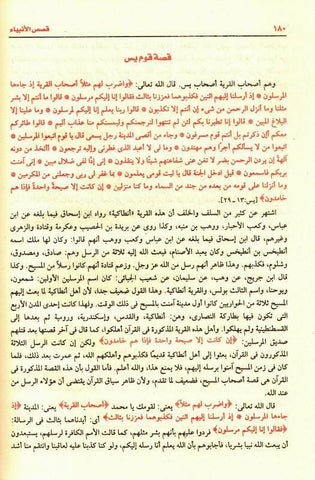 ١٨٠ قصص الأنبياء
قصة قوم يس
وهم أصحاب القرية أصحاب يس. قال الله تعالى: ﴿واضرب لهم مثلاً أصحاب القرية إذ جاءها
المرسلون * إذ أرسلنا إليهم اثنين فكذبوهما فعززنا بثالث فقالوا إنا إليكم مرسلون * قالوا ما أنتم إلا بشر
مثلنا وما أنزل الرحمن من شيء إن أنتم إلا تكذبون * قالوا ربنا يعلم إنا إليكم لمرسلون * وما علينا إلا
البلاغ المبين * قالوا إنا تطيرنا بكم لئن لم تنتهوا لنرجمنكم وليمسنكم منا عذاب أليم * قالوا طائركم
معكم أئن ذكرتم بل أنتم قوم مسرفون * وجاء من أقصى المدينة رجل يسعى قال يا قوم اتبعوا المرسلين *
اتبعوا من لا يسألكم أجراً وهم مهتدون * وما لي لا أعبد الذي فطرني وإليه ترجعون * أأتخذ من دونه
آلهة إن يردن الرحمن بضر لا تغن عني شفاعتهم شيئاً ولا ينقذون * إني إذاً لفي ضلال مبين * إني آمنت
بربكم فاسمعون * قيل ادخل الجنة قال يا ليت قومي يعلمون * بما غفر لي ربي وجعلني من المكرمين *
وما أنزلنا على قومه من بعده من جند من السماء وما كنا منزلين * إن كانت إلا صيحة واحدة فإذا هم
خامدون﴾ [يس: ١٣ - ٢٩].
اشتهر عن كثير من السلف والخلف أن هذه القرية «أنطاكية» رواه ابن إسحاق فيما بلغه عن ابن
عباس، وكعب الأحبار، ووهب بن منبه، وكذا روي عن بريدة بن الخصيب وعكرمة وقتادة والزهري
وغيرهم، قال ابن إسحاق فيما بلغه عن ابن عباس وكعب ووهب أنهم قالوا: وكان لها ملك اسمه
أنطيخس بن أنطيخس وكان يعبد الأصنام، فبعث الله إليه ثلاثة من الرسل وهم: صادق، ومصدوق،
وشلوم، فكذبهم. وهذا ظاهر أنهم رسل من الله عز وجل. وزعم قتادة أنهم كانوا رسلاً من المسيح. وكذا
قال ابن جريج، عن وهب، عن سليمان، عن شعيب الجبائي: كان اسم المرسلين الأولين: شمعون،
ويوحنا، واسم الثالث بولس، والقرية أنطاكية. وهذا القول ضعيف جداً، لأن أهل أنطاكية لما بعث إليهم
المسيح ثلاثة من الحواريين كانوا أول مدينة آمنت بالمسيح في ذلك الوقت، ولهذا كانت إحدى المدن الأربع
التي تكون فيها بطاركة النصارى، وهن: أنطاكية، والقدس، وإسكندرية، ورومية ثم بعدها إلى
القسطنطينية ولم يهلكوا. وأهل هذه القرية المذكورة في القرآن أهلكوا، كما قال في آخر قصتها بعد قتلهم
صديق المرسلين: ﴿إن كانت إلا صيحة واحدة فإذا هم خامدون﴾ ولكن إن كانت الرسل الثلاثة
المذكورون في القرآن، بعثوا إلى أهل أنطاكية قديماً فكذبوهم وأهلكهم الله، ثم عمرت بعد ذلك، فلما
كان في زمن المسيح آمنوا برسله إليهم، فلا يمنع هذا، والله أعلم. فأما القول بأن هذه القصة المذكورة في
القرآن هي قصة أصحاب المسيح، فضعيف لما تقدم، ولأن ظاهر سياق القرآن يقتضي أن هؤلاء الرسل من
عند الله.
قال الله تعالى: ﴿واضرب لهم مثلاً﴾ يعني: لقومك يا محمد ﴿أصحاب القرية﴾ يعني: المدينة ﴿إذ
جاءها المرسلون * إذ أرسلنا إليهم اثنين فكذبوهما فعززنا بثالث﴾ أي: أيدناهما بثالث في الرسالة:
﴿فقالوا إنا إليكم مرسلون﴾ فردوا عليهم بأنهم بشر مثلهم، كما قالت الأمم الكافرة لرسلهم، يستبعدون
أن يبعث الله نبياً بشرياً، فأجابوهم بأن الله يعلم أنا رسله إليكم، ولو كنا كذبنا عليه لعاقبنا وانتقم منا أشد